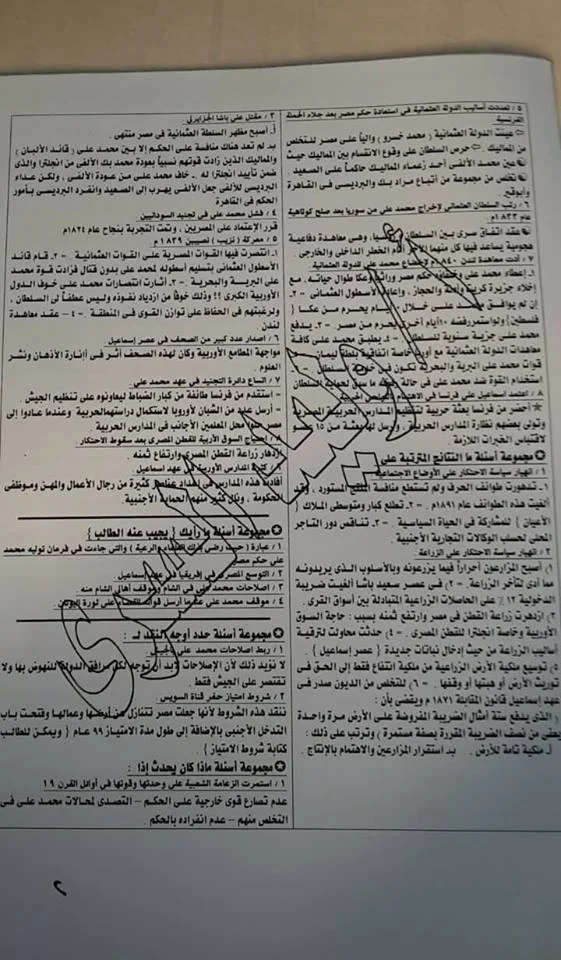 ٥ / تعددت أساليب الدولة العثمانية فى استعادة حكم مصر بعد جلاء الحملة
الفرنسية.
عينت الدولة العثمانية ( محمد خسرو ) والياً على مصر للتخلص
من المماليك . حرص السلطان على وقوع الانقسام بين المماليك حيث
عين محمد الألفى أحد زعماء المماليك حاكماً على الصعيد .
تخلص من مجموعة من أتباع مراد بك والبرديسى فى القاهرة
وأبوقير.
٦ / رتب السلطان العثمانى لإخراج محمد على من سوريا بعد صلح كوتاهية
عام ١٨٣٣م
عقد اتفاق سرى بين السلطان وهى معاهدة دفاعية
هجومية يساعد فيها كل منهما الآخر أمام الخطر الداخلى والخارجى .
٧ / أدت معاهدة لندن ١٨٤٠ لإخضاع محمد على للدولة العثمانية
١ـ إعطاء محمد على حكم مصر وراثياً وعكا طوال حياته ، مع
إخلاء جزيرة كريت والحجاز ، وإعادة الأسطول العثمانى . ٢ـ
إن لم يوافق محمد على خلال أيام يحرم من عكا {
فلسطين } ولو استمر رفضه ١٠ أيام أخرى يحرم من مصر . ٣ـ يدفع
محمد على جزية سنوية للسلطان . ٤ـ يطبق محمد على كافة
معاهدات الدولة العثمانية مع أوربا خاصة اتفاقية بلطة ليمان
قوات محمد على البرية والبحرية تكون فى خدمة السلطان . ٦ـ
استخدام القوة ضد محمد على فى حالة ما سبق لحماية السلطان
٨ / اعتمد إسماعيل على فرنسا فى الاهتمام الحربية
أحضر من فرنسا بعثة حربية لتنظيم المدارس الحربية المصرية
وتولى بعضهم نظارة المدارس الحربية ، وأرسل لها بعثة من ١٥
لاقتباس الخبرات اللازمة
مجموعة أسئلة ما النتائج المترتبة على
١ / انهيار سياسة الاحتكار على الأوضاع الاجتماعية
١ـ تدهورت طوائف الحرف ولم تستطع منافسة المستورد ، وقد
ألغيت هذه الطوائف عام ١٨٩١م . ٢ـ تطلع كبار ومتوسطى الملاك {
الأعيان } للمشاركة فى الحياة السياسية . ٣ـ تناقص دور التاجر
المحلى لحساب الوكالات التجارية الأجنبية .
٢ / انهيار سياسة الاحتكار على الزراعة .
١) أصبح المزارعون أحراراً فيما يزرعونه وبالأسلوب الذى يريدونه
مما أدى لتأخر الزراعة . ٢) فى عصر سعيد باشا ألغيت ضريبة
الدخولية ١٢ ٪ على الحاصلات الزراعية المتبادلة بين أسواق القرى .
٣) ازدهرت زراعة القطن فى مصر وارتفع ثمنه بسبب : حاجة السوق
الأوربية وخاصة انجلترا للقطن المصرى . ٤) حدثت محاولات لترقية
أساليب الزراعة من حيث إدخال نباتات جديدة { عصر إسماعيل } .
٥) توسيع ملكية الأرض الزراعية من ملكية انتفاع فقط إلى الحق فى
توريث الأرض أو هبتها أو وقفها . ٦) للتخلص من الديون صدر فى
عهد إسماعيل قانون المقابلة ١٨٧١م ويقضى بأن :
( الذى يدفع ستة أمثال الضريبة المفروضة على الأرض مرة واحدة
يعفى من نصف الضريبة المقررة بصفة مستمرة ) وترتب على ذلك :
أـ ملكية تامة للأرض . بـ استقرار المزارعين والاهتمام بالإنتاج .
٣ / مقتل على باشا الجزايرلى
أـ أصبح مظهر السلطة العثمانية فى مصر منتهى .
بـ لم تعد هناك منافسة على الحكم إلا بين محمد على ( قائد الألبان )
والمماليك الذين زادت قوتهم نسبياً بعودة محمد بك الألفى من انجلترا والذى
ضمن تأييد انجلترا له . خاف محمد على من عودة الألفى ، ولكن عداء
البرديسى للألفى جعل الألفى يهرب إلى الصعيد وانفرد البرديسى بأمور
الحكم فى القاهرة
٤ / فشل محمد على فى تجنيد السودانيين
قرر الاعتماد على المصريين ، وتمت التجربة بنجاح عام ١٨٢٤م
٥ / معركة ( نزيب ) نصيبين ١٨٣٩م
١ـ انتصرت فيها القوات المصرية على القوات العثمانية . ٢ـ قام قائد
الأسطول العثمانى بتسليم أسطوله لمحمد على بدون قتال فزادت قوة محمد
على البرية والبحرية . ٣ـ أثارت انتصارات محمد على خوف الدول
الأوربية الكبرى !! وذلك خوفاً من ازدياد نفوذه وليس عطفاً لى السلطان ،
ولرغبتهم فى الحفاظ على توازن القوى فى المنطقة . ٤ـ عقد معاهدة
لندن .
٦ / إصدار عدد كبير من الصحف فى عصر إسماعيل .
مواجهة المطامع الأوربية وكان لهذه الصحف أثر فى إنارة الأذهان ونشر
العلوم .
٧ / اتساع دائرة التجنيد فى عهد محمد على
- استقدم من فرنسا طائفة من كبار الضباط ليعاونوه على تنظيم الجيش .
- أرسل عدد من الشبان لأوروبا لاستكمال دراستهم الحربية وعندما عادوا إلى
مصر حلوا محل المعلمين الأجانب فى المدارس الحربية .
٨ / احتياج السوق الأوربية للقطن المصرى بعد سقوط الاحتكار
ازدهار زراعة القطن المصرى وارتفاع ثمنه .
٩ / كثرة المدارس الأوربية فى عهد إسماعيل
أفادت هذه المدارس فى إعداد عناصر كثيرة من رجال الأعمال والمهن وموظفى
الحكومة . ونال كثير منهم الحماية الأجنبية .
مجموعة أسئلة ما رأيك { يجيب عنه الطالب }
١ / عبارة ( حسب رضى والرعية ) والتى جاءت فى فرمان توليه محمد
على حكم مصر
٢ / التوسع المصرى فى إفريقيا فى عهد إسماعيل .
٣ / إصلاحات محمد على فى الشام وموقف أهالى الشام منه .
٤ / موقف محمد على عندما أرسل قواته للقضاء على ثورة اليونان .
مجموعة أسئلة حدد أوجه النقد لـ :
١ / ربط إصلاحات محمد على بالجيش .
لا نؤيد ذلك لأن الإصلاحات لابد أن توجه لكل مرافق الدولة للنهوض بها ولا
تقتصر على الجيش فقط .
٢ / شروط امتياز حفر قناة السويس .
ننقد هذه الشروط لأنها جعلت مصر تتنازل عن أرضها وعمالها وفتحت باب
التدخل الأجنبى بالإضافة إلى طول مدة الامتياز ٩٩ عام { ويمكن للطالب
كتابة شروط الامتياز } .
مجموعة أسئلة ماذا كان يحدث إذا :
١ / استمرت الزعامة الشعبية على وحدتها وقوتها فى أوائل القرن ١٩
عدم تصارع قوى خارجية على الحكم – التصدى لمحاولات محمد على فى
التخلص منهم – عدم انفراده بالحكم .
٢